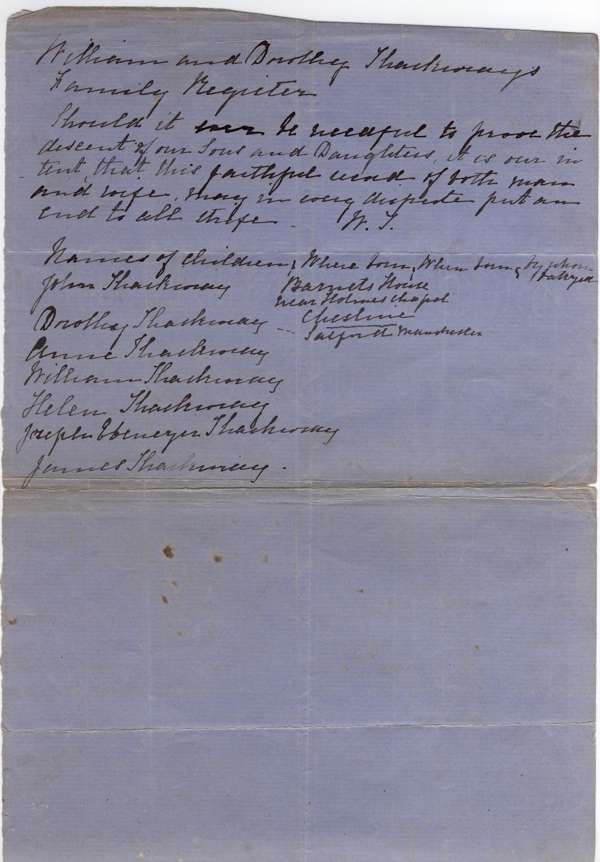 William and Dorothy Thackway's
Family Register
Should it ever be needful to prove the
descent of our Sons and Daughters, it is our in
tent, that this faithful of both man
and wife, may in every dispute put an
end to all strife. W. T.
Names of children, Where born, When born, by whom
baptized
John Thackway Barnets House
near Holmes Chapel
Cheshire
Dorothy Thackway --- Salford Manchester
Anne Thackway
William Thackway
Helen Thackway
Joseph Ebenezer Thackway
James Thackway.